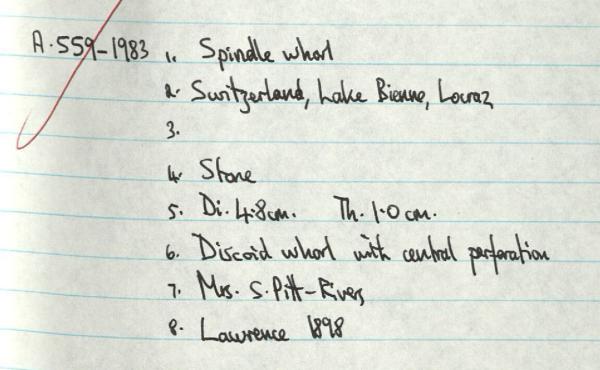 A.559-1983 1. Spindle whorl
2. Switzerland, Lake Bienne, Locraz
3.
4. Stone
5. Di. 4.8cm. Th. 1.0 cm.
6. Discoid whorl with central perforation
7. Mrs. S. Pitt-Rivers
8. Lawrence 1898